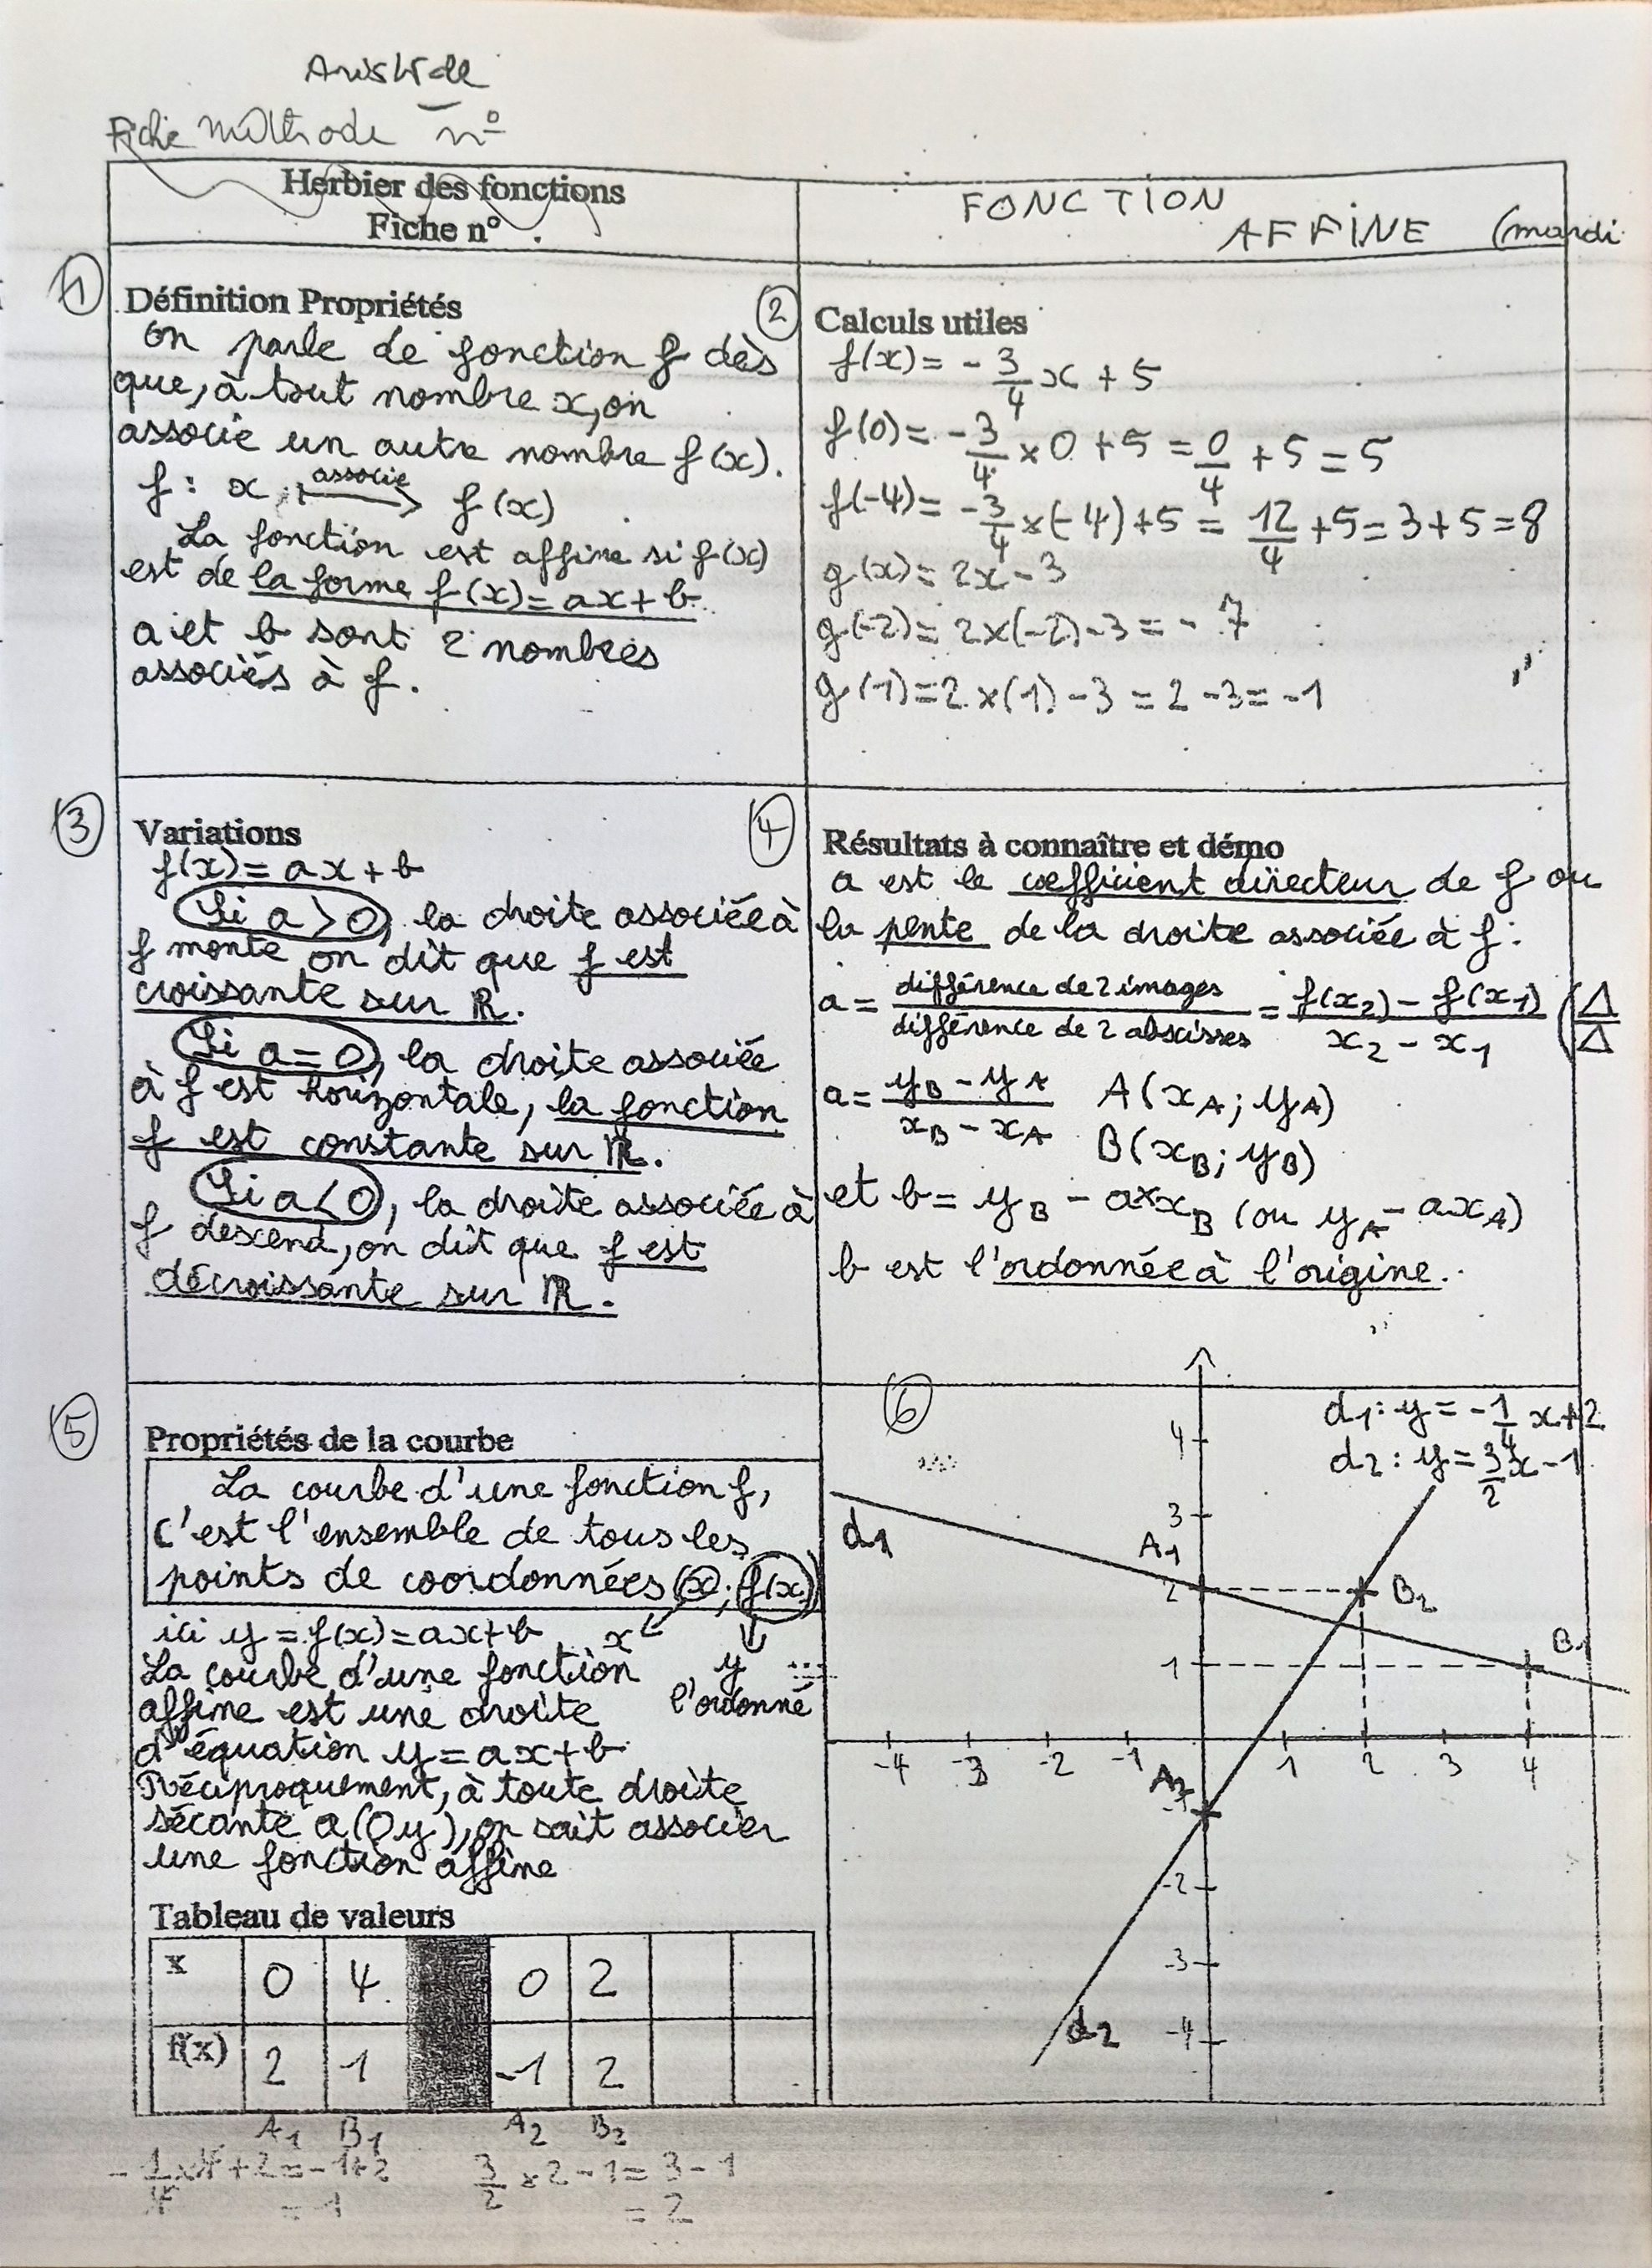 Aristide
Fiche méthode n°
Herbier des fonctions
Fiche n° .
FONCTION
AFFINE (mardi
1
Définition Propriétés
on parle de fonction f dès
que, à tout nombre x, on
associe un autre nombre f(x).
f : x associe ⟼ f(x)
La fonction est affine si f(x)
est de la forme f(x) = ax + b.
a et b sont 2 nombres
associés à f.
2
Calculs utiles
f(x) = - 3/4 x + 5
f(0) = - 3/4 × 0 + 5 = 0/4 + 5 = 5
f(-4) = - 3/4 × (-4) + 5 = 12/4 + 5 = 3 + 5 = 8
g(x) = 2x - 3
g(-2) = 2×(-2) - 3 = - 7
g(1) = 2 × (1) - 3 = 2 - 3 = -1
3
Variations
f(x) = ax + b
Si a > 0, la droite associée à
f monte on dit que f est
croissante sur ℝ.
Si a = 0, la droite associée
à f est horizontale, la fonction
f est constante sur ℝ.
Si a < 0, la droite associée à
f descend, on dit que f est
décroissante sur ℝ.
4
Résultats à connaître et démo
a est le coefficient directeur de f ou
la pente de la droite associée à f :
a = différence de 2 images / différence de 2 abscisses = f(x2) - f(x1) / x2 - x1 (Δ/Δ
a = yB - yA / xB - xA A(xA ; yA)
B(xB ; yB)
et b = yB - a×xB (ou yA - axA)
b est l'ordonnée à l'origine.
5
Propriétés de la courbe
La courbe d'une fonction f,
c'est l'ensemble de tous les
points de coordonnées (x ; f(x))
ici y = f(x) = ax + b x
La courbe d'une fonction y
affine est une droite l'ordonné
d'équation y = ax + b
Réciproquement, à toute droite
sécante a (Oy), on sait associer
une fonction affine
Tableau de valeurs
x 0 4 0 2
f(x) 2 1 -1 2
A1 B1 A2 B2
- 1/4 ×4 + 2 = -1+2 3/2 × 2 - 1 = 3 - 1
= 1 = 2
6
d1 : y = - 1/4 x + 2
d2 : y = 3/2 x - 1
4
3
d1
A1
2
B2
B1
1
-4 -3 -2 -1 1 2 3 4
A2
-1
-2
-3
d2
-4